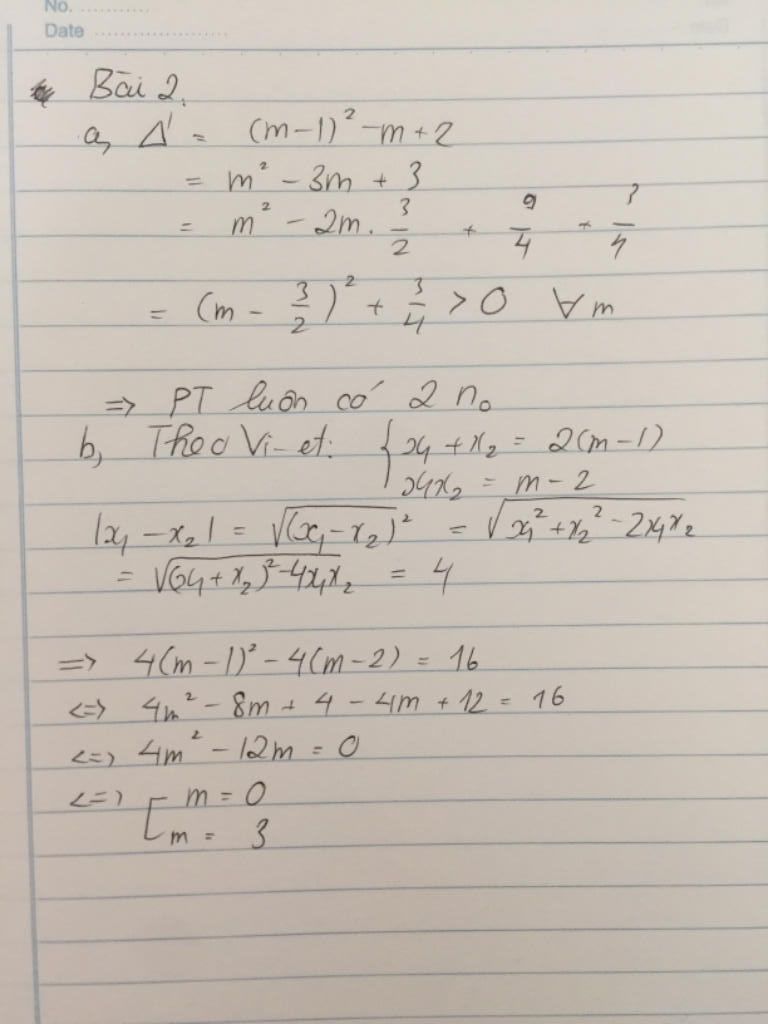 No. ...........
Date ......................
Bài 2.
a, Δ' = (m-1)² - m + 2
= m² - 3m + 3
= m² - 2m. 3/2 + 9/4 + 3/4
= (m - 3/2)² + 3/4 > 0 ∀m
=> PT luôn có 2 no
b, Theo Vi-et: { x₁ + x₂ = 2(m-1)
x₁x₂ = m - 2
|x₁ - x₂| = √(x₁-x₂)² = √x₁² + x₂² - 2x₁x₂
= √(x₁+x₂)² - 4x₁x₂ = 4
=> 4(m-1)² - 4(m-2) = 16
<=> 4m² - 8m + 4 - 4m + 12 = 16
<=> 4m² - 12m = 0
<=> [ m = 0
m = 3